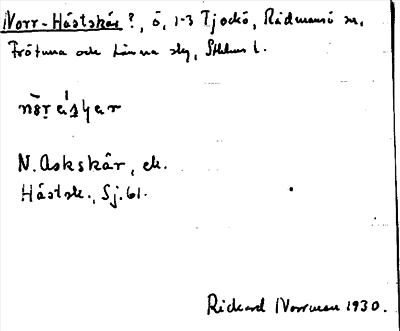 Norr-Håstskär?, ö, 1-3 Tjockö, Rådmansö sn,
Frötuna och Länna skg, Sthlms l.
N. Askskär, ek.
Håstsk., Sj. 61.
Rickard Norrman 1930.